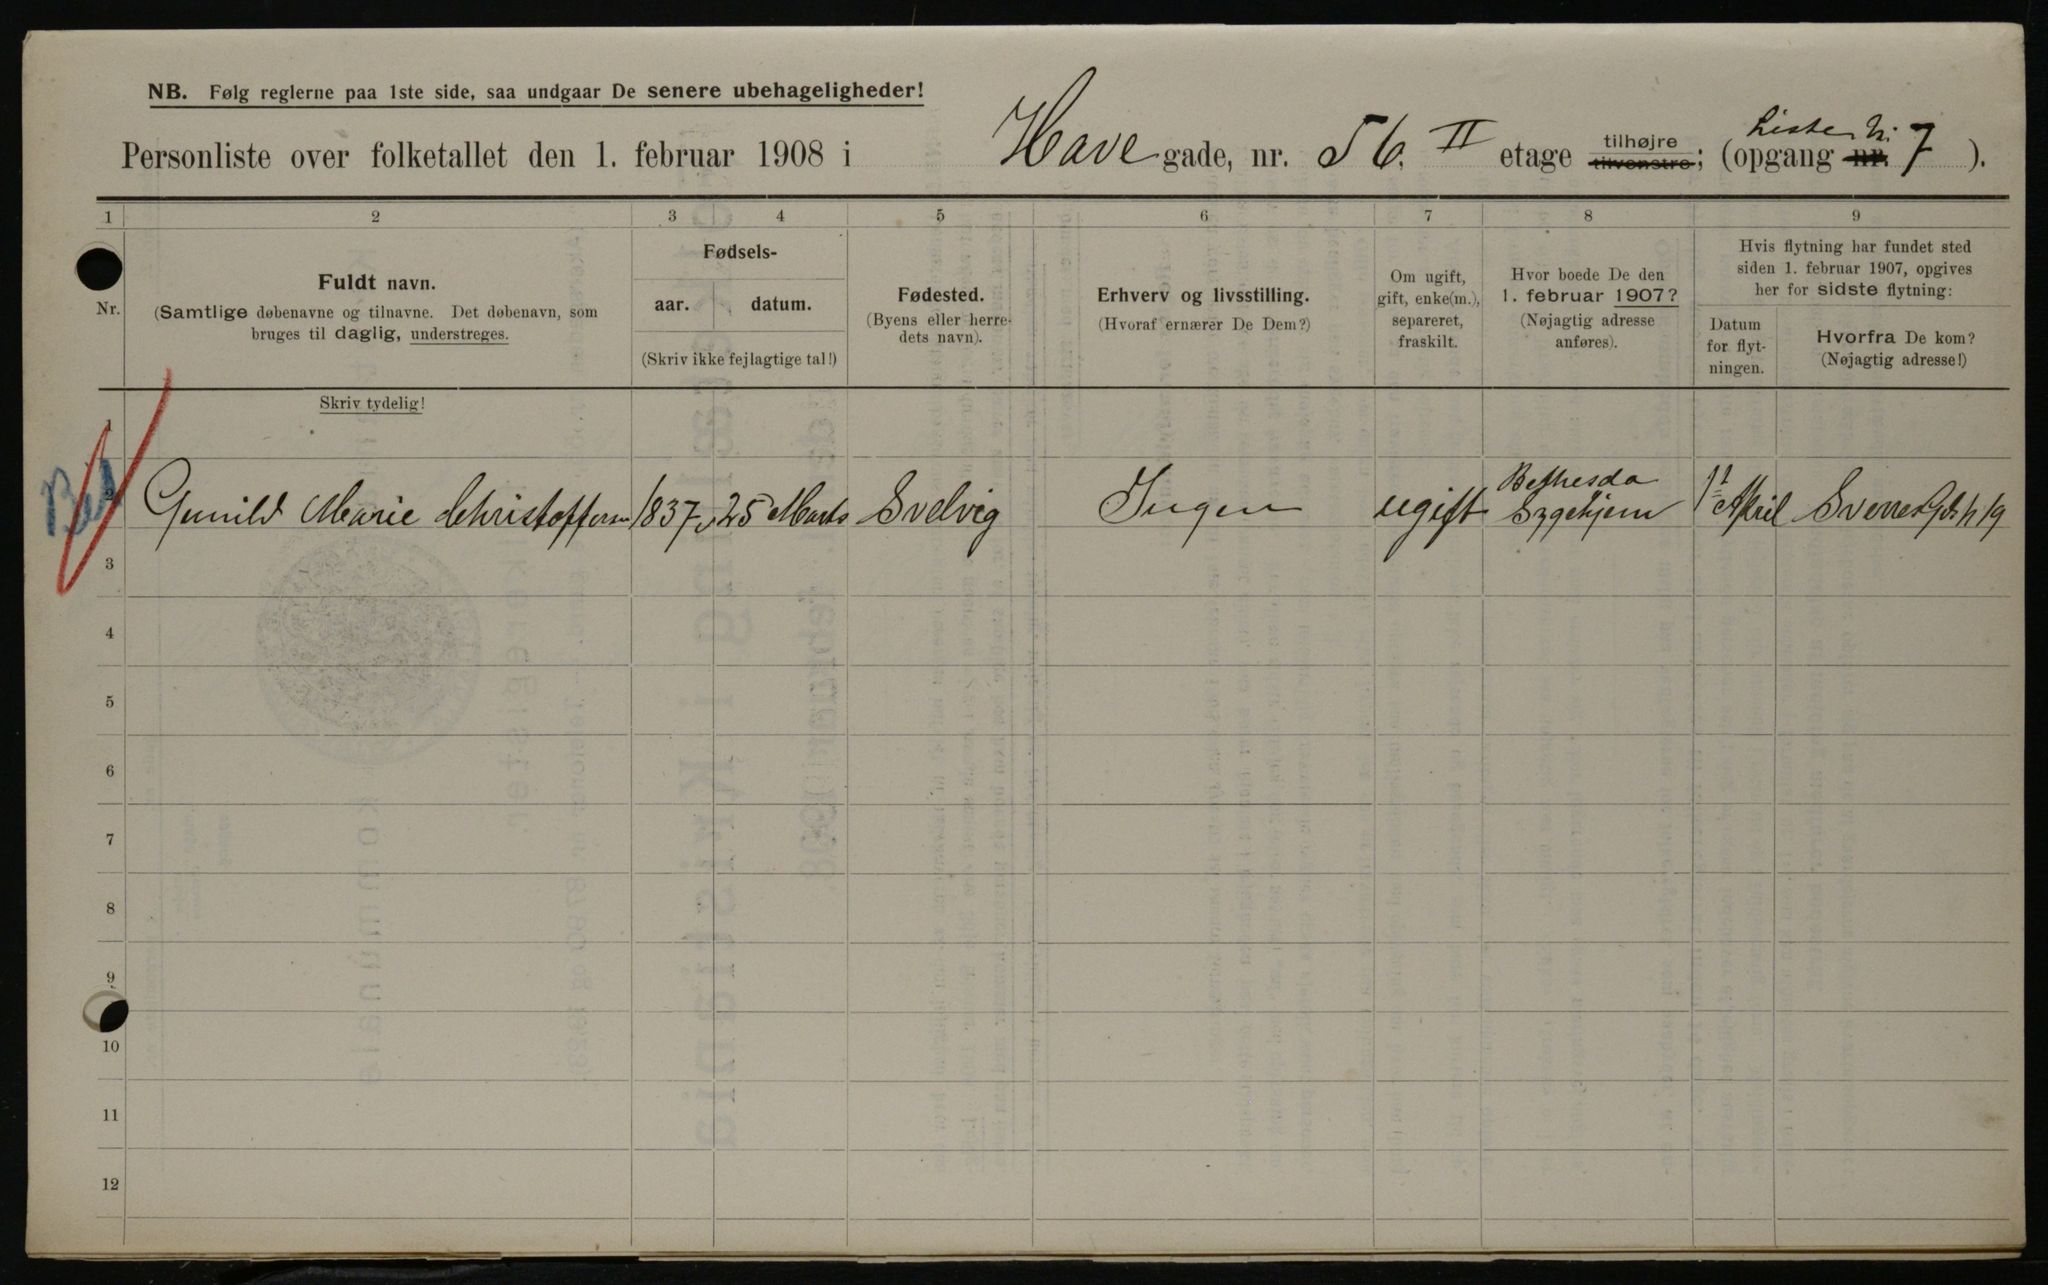 NB. Følg reglerne paa 1ste side, saa undgaar De senere ubehageligheder!
Liste Nr.
Personliste over folketallet den 1. februar 1908 i Have gade, nr. 56, II etage tilhøjre tilvenstre; (opgang nr. 7 ).
1 2 3 4 5 6 7 8 9
Nr.
Fuldt navn.
(Samtlige døbenavne og tilnavne. Det døbenavn, som
bruges til daglig, understreges.
Fødsels-
aar. datum.
(Skriv ikke fejlagtige tal!)
Fødested.
(Byens eller herre-
dets navn).
Erhverv og livsstilling.
(Hvoraf ernærer De Dem?)
Om ugift,
gift, enke(m.),
separeret,
fraskilt.
Hvor boede De den
1. februar 1907?
(Nøjagtig adresse
anføres).
Hvis flytning har fundet sted
siden 1. februar 1907, opgives
her for sidste flytning:
Datum
for flyt-
ningen.
Hvorfra De kom?
(Nøjagtig adresse!)
Skriv tydelig!
1
2 Gunild Marie Christoffersen 1837 25 Marts Svelvig Ingen ugift Bethesda
Sygehjem 1st April Sverres Gd. 19
3
4
5
6
7
8
9
10
11
12